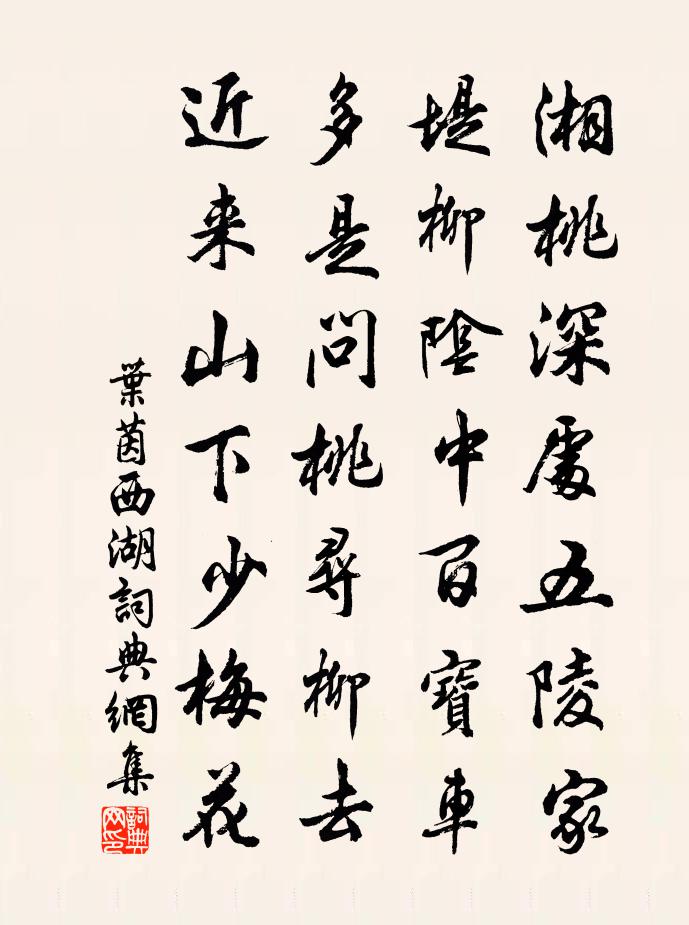 湘桃深處五陵家
堤柳陰中百寶車
多是問桃尋柳去
近来山下少梅花
葉茵西湖詞典網集
詞典网印